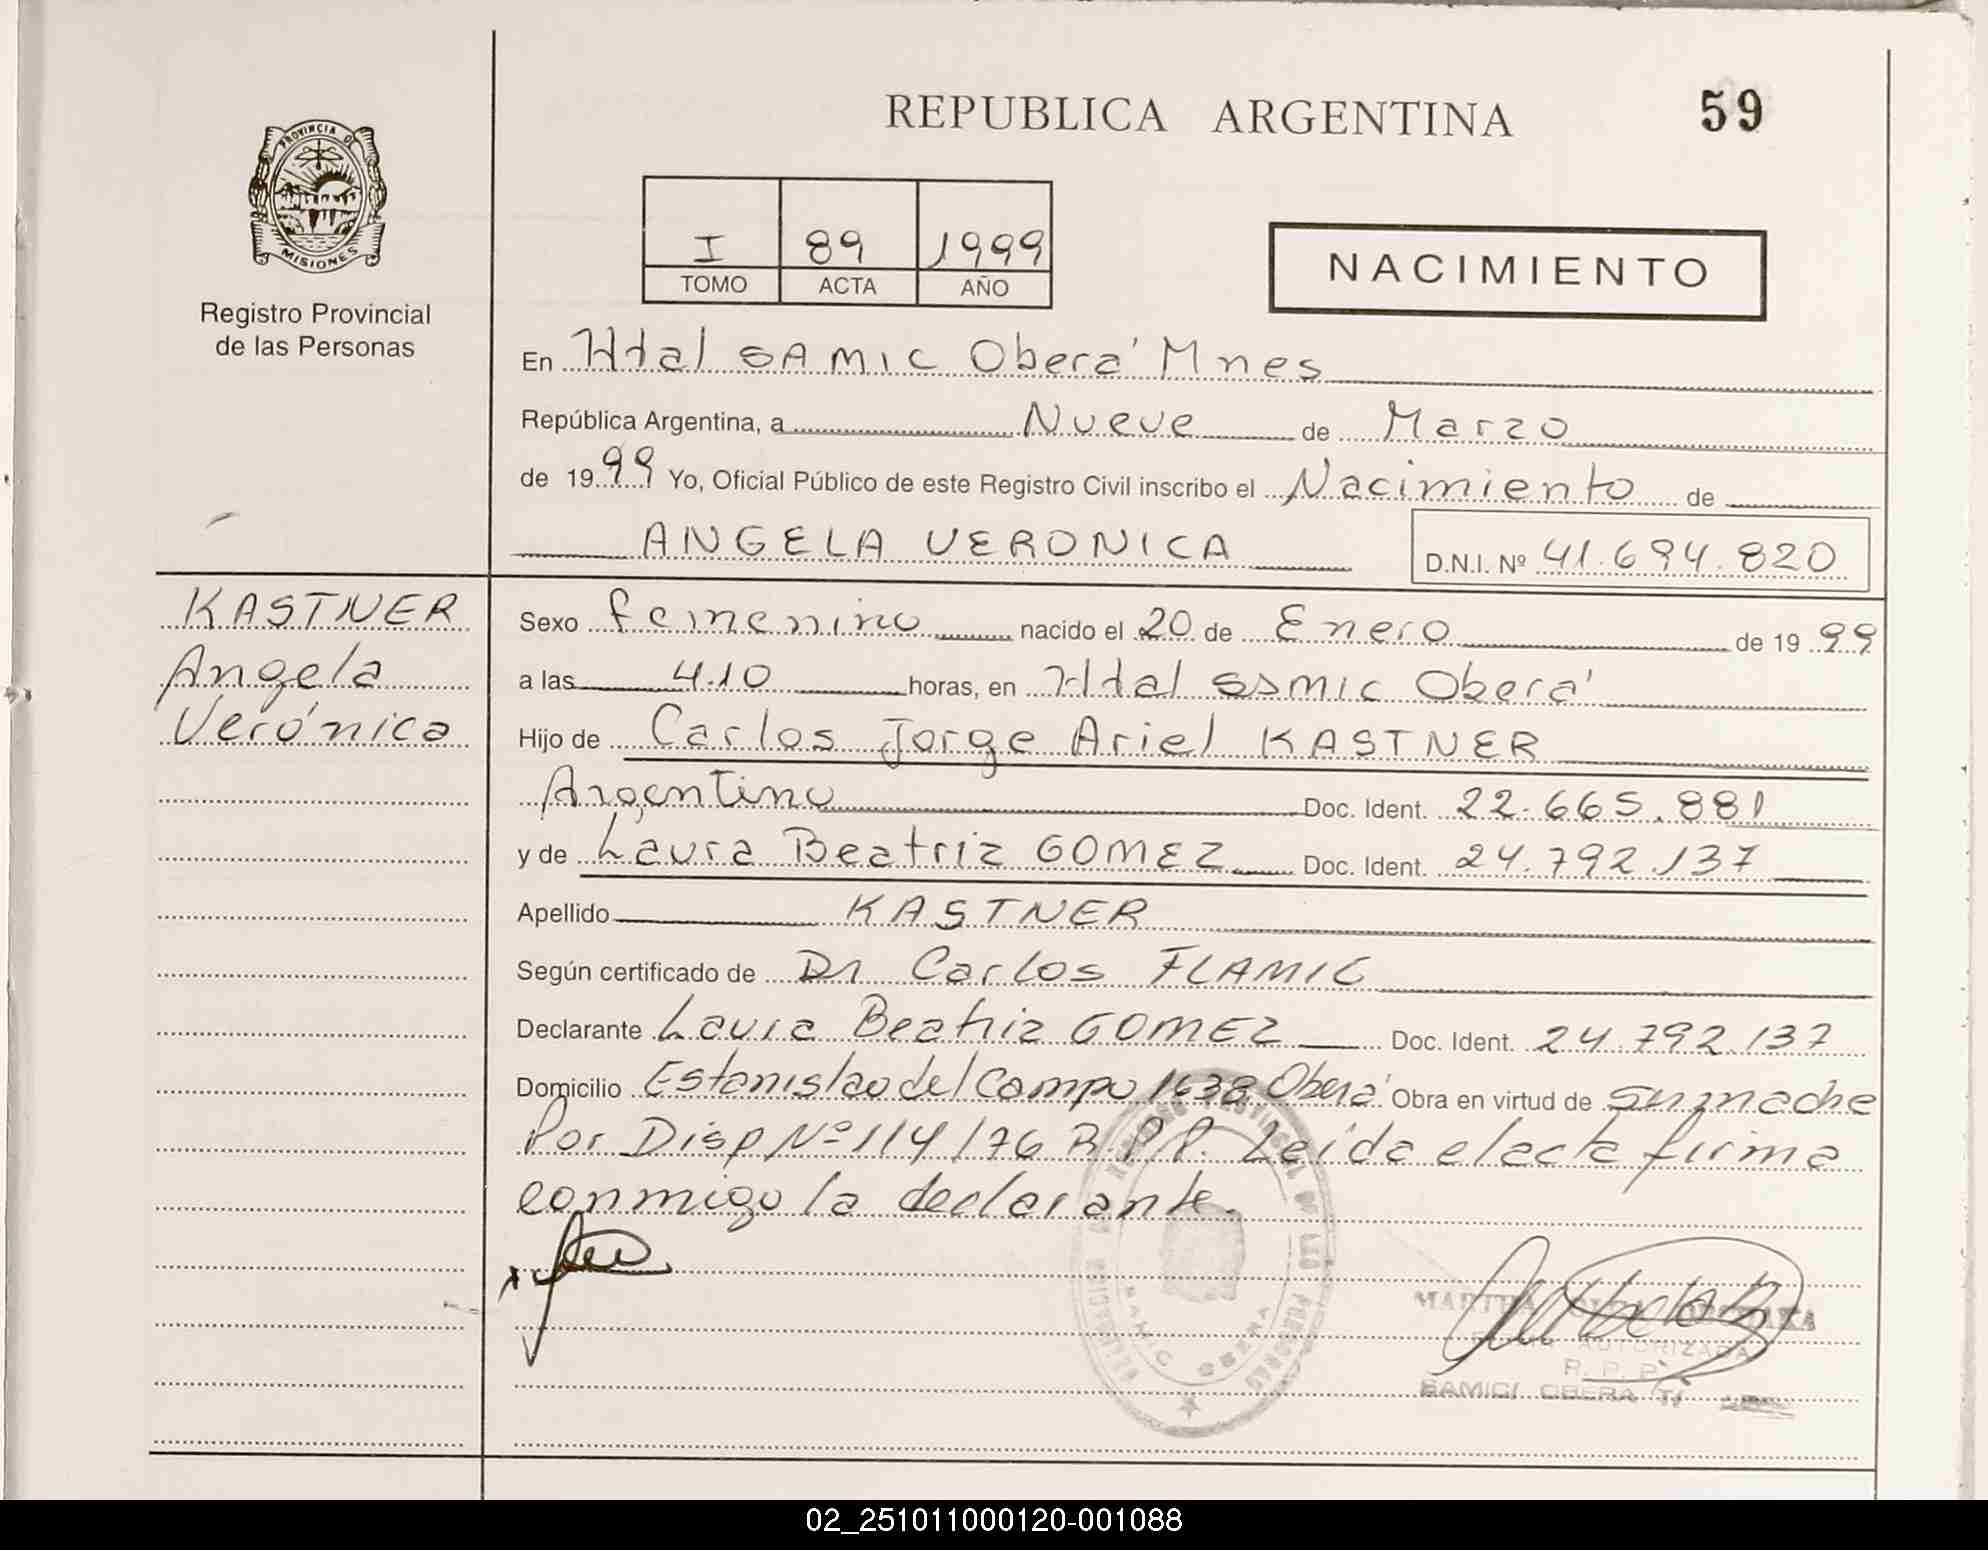 REPUBLICA ARGENTINA
59
PROVINCIA DE
MISIONES
Registro Provincial
de las Personas
I 89 1999
TOMO ACTA AÑO
NACIMIENTO
En Htal SAMIC Oberá Mnes
República Argentina, a Nueve de Marzo
de 1999 Yo, Oficial Público de este Registro Civil inscribo el Nacimiento de
ANGELA VERONICA D.N.I. Nº 41.694.820
KASTNER
Angela
Verónica
Sexo femenino nacido el 20 de Enero de 1999
a las 4.10 horas, en Htal SAMIC Oberá
Hijo de Carlos Jorge Ariel KASTNER
Argentino Doc. Ident. 22.665.881
y de Laura Beatriz GOMEZ Doc. Ident. 24.792.137
Apellido KASTNER
Según certificado de Dr Carlos FLAMIG
Declarante Laura Beatriz GOMEZ Doc. Ident. 24.792.137
Domicilio Estanislao del Campo 1638 Oberá Obra en virtud de su madre
Por Disp Nº 114/76 R.P.P. Leída el acta firma
conmigo la declarante.
MARTHA
AUTORIZADA
R. P. P.
SAMIC OBERA
02_251011000120-001088